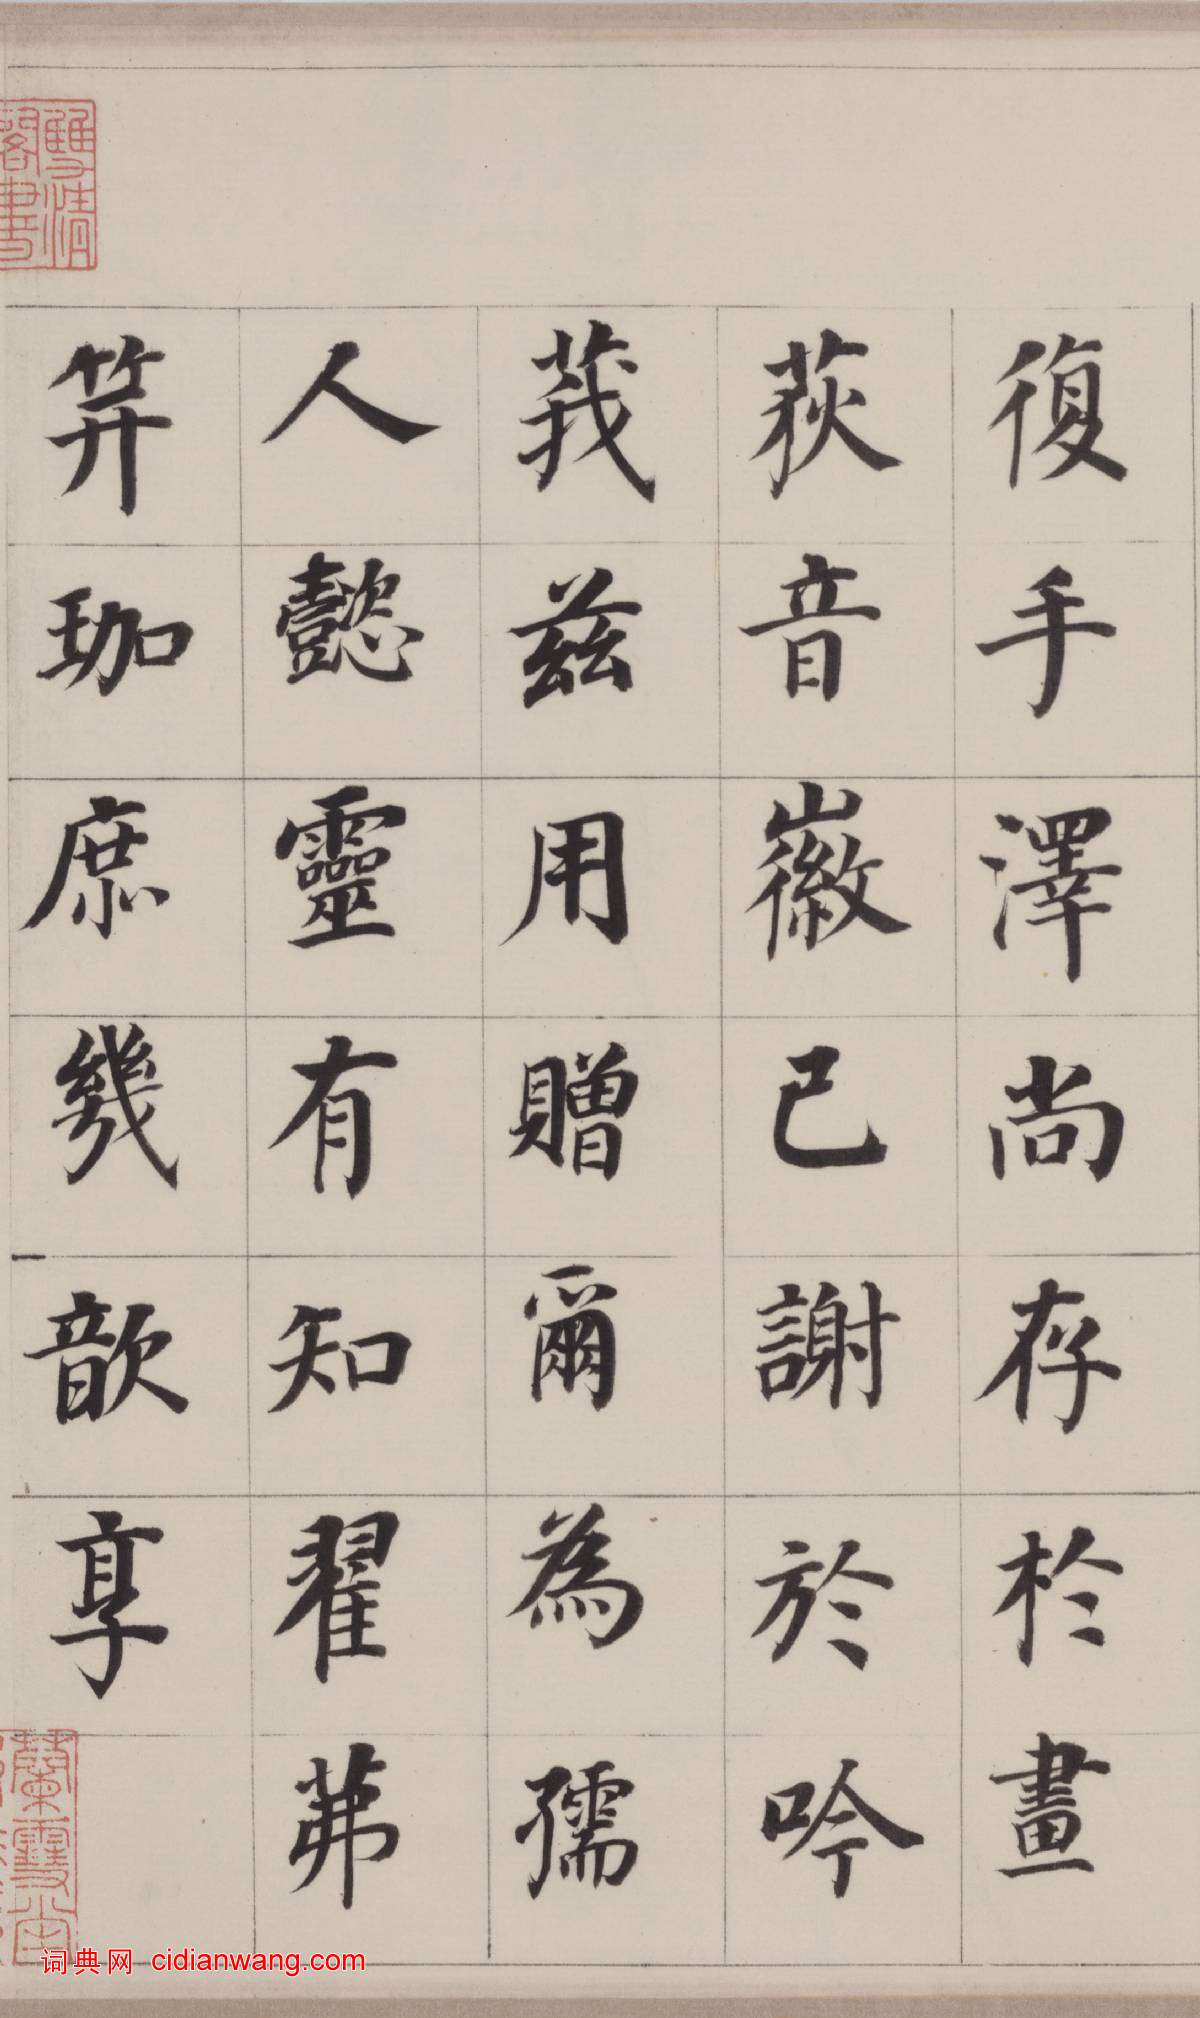 復手澤尚存於畫
荻音徽已謝於吟
莪茲用贈爾為孺
人懿靈有知翟茀
笄珈庶幾歆享
雙清閣書
蘭雪堂
词典网 cidianwang.com